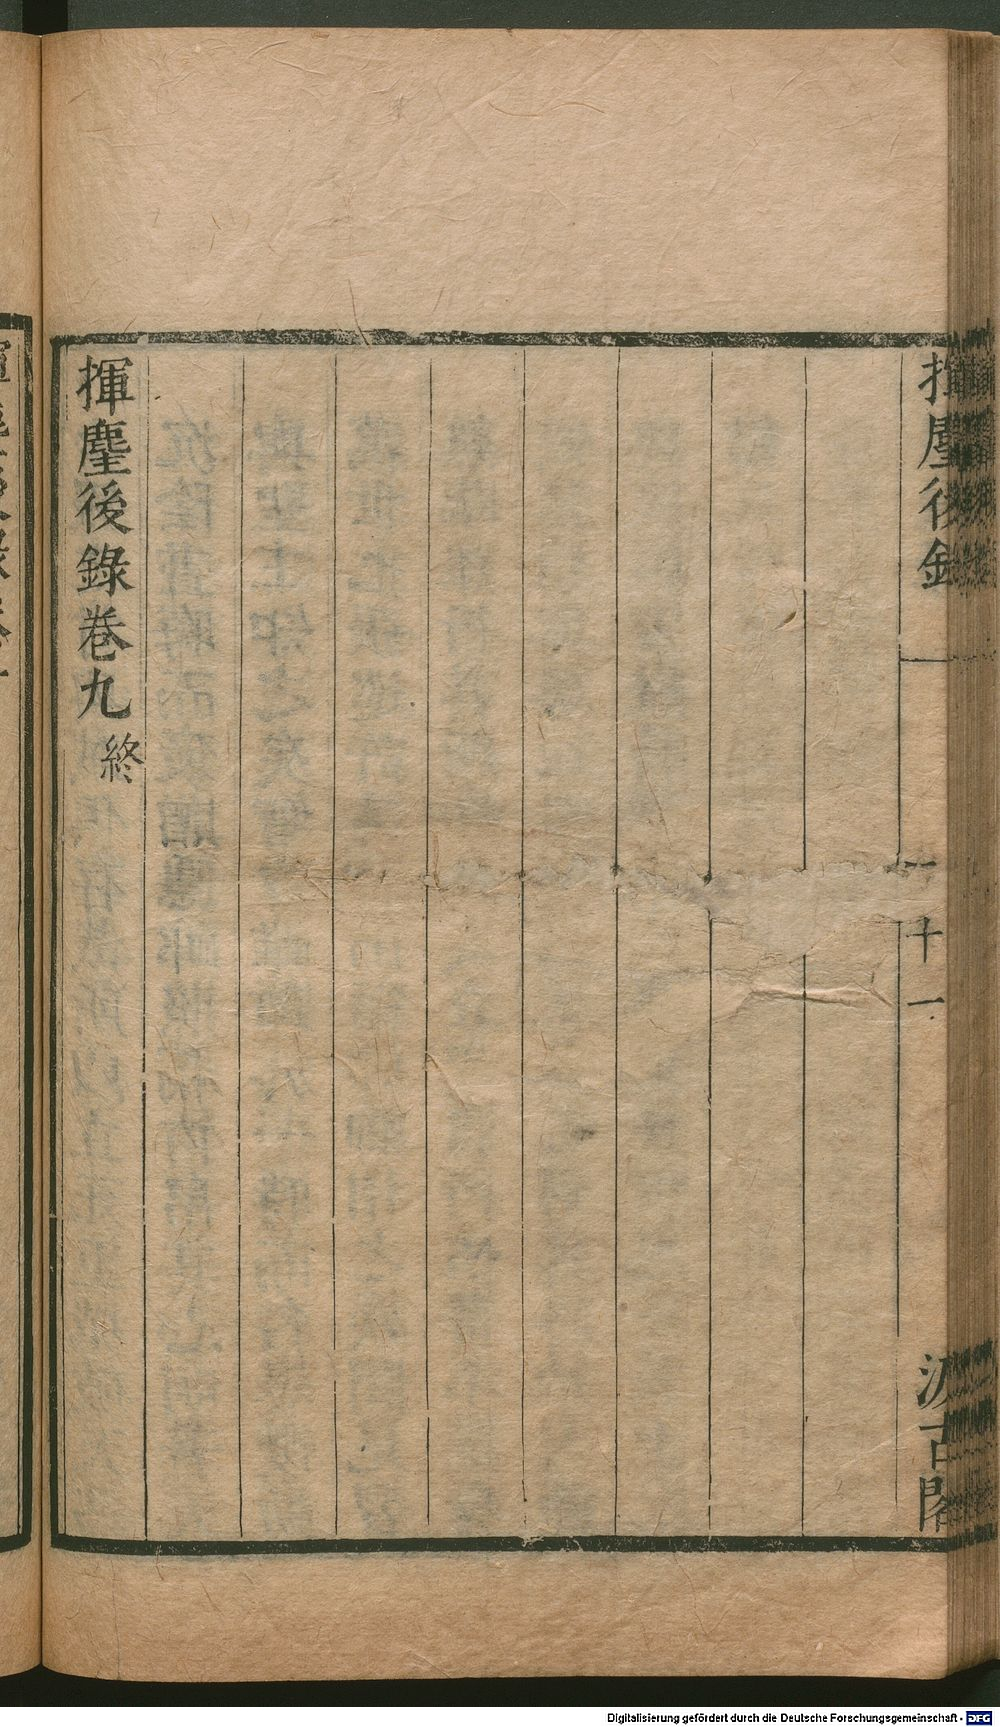 揮麈後錄
十一
汲古閣
揮麈後錄卷九終
Digitalisierung gefördert durch die Deutsche Forschungsgemeinschaft - DFG